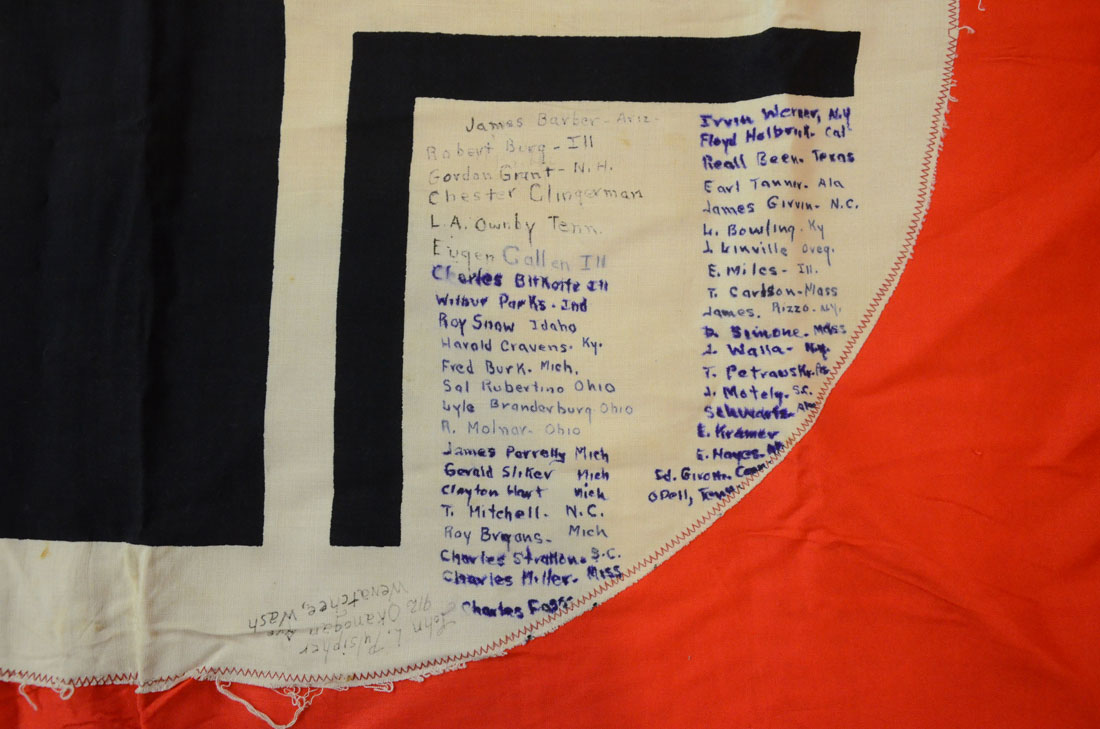 James Barber - Ariz.
Robert Burg - Ill
Gordon Grant - N. H.
Chester Clingerman
L.A. Ownby Tenn.
Eugen Gallen Ill
Charles Ill
Wilbur Parks. Ind
Roy Snow Idaho
Harold Cravens. Ky.
Fred Burk. Mich.
Sal Rubertino Ohio
Lyle Branderburg Ohio
A. Molnar - Ohio
James Parrelly Mich
Gerald Sliker Mich
Clayton Hart Mich
T. Mitchell. N.C.
Roy Mich
Charles Stratton. S.C.
Charles Miller. Miss
Charles
Irvin Werner, N.Y
Floyd Holbrook. Cal
Reall Been. Texas
Earl Tanner. Ala
James Girvin. N.C.
L. Bowling. Ky
J. Linville Oreg.
E. Miles - Ill.
T. Carlson - Mass
James. Rizzo. N.Y.
D. Simone. Mass
J. Walla - N.Y.
T. Petrawsky. Pa.
J. Motely. S.C.
Schwartz.
E. Kramer
E. Hayes.
Ed. Conn
O Dell, Tenn
John L. Pulsipher
912 Okanogan Ave
Wenatchee, Wash